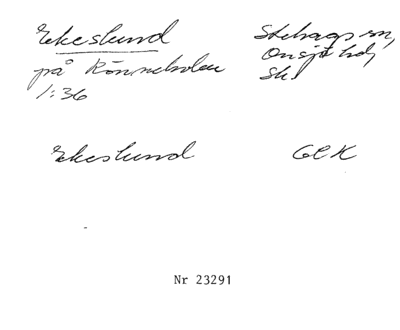 Ekeslund
på Rönneholm
1:36
Stehags sn,
Onsjö hd,
Sk.
Ekeslund GCK
Nr 23291